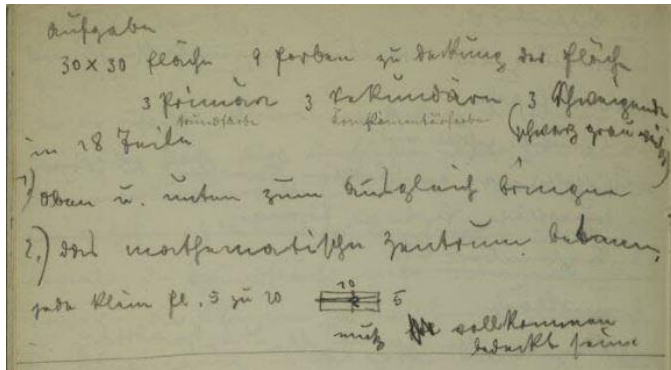 Aufgabe
30 x 30 Fläche 9 Farben zu Deckung der Fläche
3 Primäre 3 Sekundäre 3 Schweigende
Grundfarbe Komplementärfarbe (schwarz grau weis)
in 18 Teile
1) oben u. unten zum Ausgleich bringen
2.) das mathematische Zentrum betonen,
jede kleine Fl. 5 zu 10 10 5
muß vollkommen
bedeckt sein